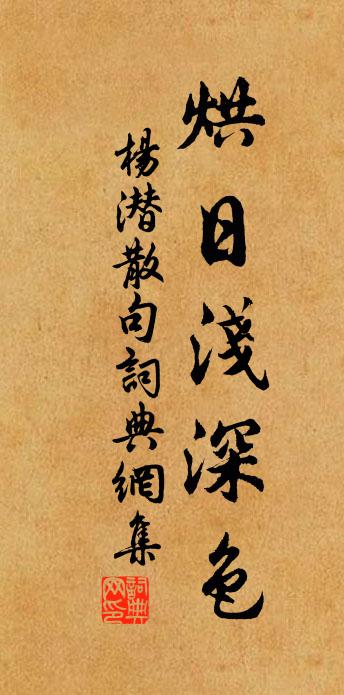 烘日淺深色
楊潛散句詞典網集
詞典
网印